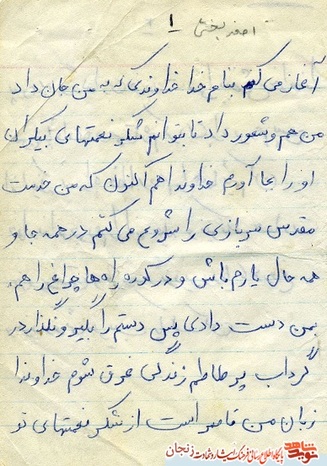 اصغر بخشی ۱
آغاز می کنم بنام خدا خداوندی که به من جان داد
من هم و شعور داد تا بتوانم شکر نعمتهای بیکران
او را بجا آورم خداوندا هم اکنون که من خدمت
مقدس سربازی را شروع می کنم در همه جا و
همه حال یارم باش و در کوره راه ها چراغ راهم.
بمن دست دادی پس دستم را بگیر و نگذار در
گرداب پر طلاطم زندگی غرق شوم خداوندا
زبان من قاصر است از شکر نعمتهای تو
نوید شاهد پایگاه اطلاع رسانی فرهنگ ایثار و شهادت زنجان